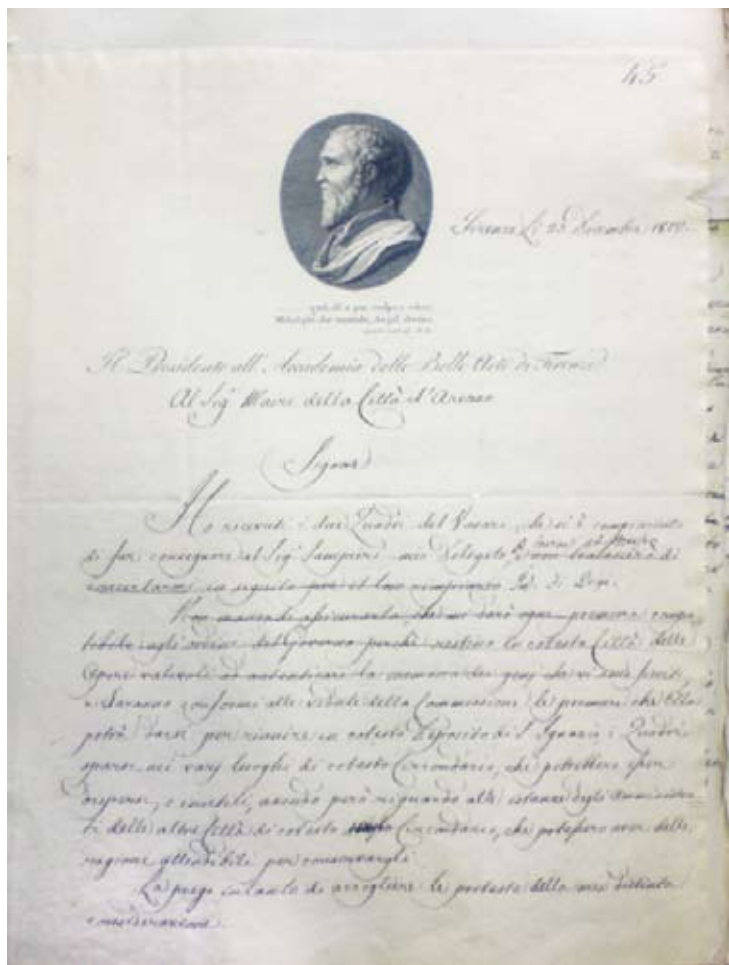 45
Firenze Li 23 Dicembre 18
Michel più che mortale, Angel divino
Il Presidente all'Accademia delle Belle Arti di Firenze
Al Sig.r Maire della Città d'Arezzo
Signore
Ho ricevuti i due Quadri del Vasari, che si è compiaciuto
di far consegnare al Sig.r mio Delegato
in seguito
Non mancando che mi darò ogni premura
agli ordini del Governo perché restino in cotesta Città delle
Opere valevoli ad autenticare la memoria dei genj che vi sono fioriti,
e Saranno conformi alle vedute della Commissione le premure che Ella
potrà darsi per riunire in cotesto Deposito di S. Ignazio i Quadri
sparsi nei varj luoghi di cotesto Circondario, che potessero esser
dispersi, o inutili, avendo però riguardo alle istanze degli Amministra
ti delle altre Città di cotesto Circondario, che potessero aver delle
ragioni attendibili per conservargli.
La prego intanto di accogliere le proteste della mia distinta
considerazione.